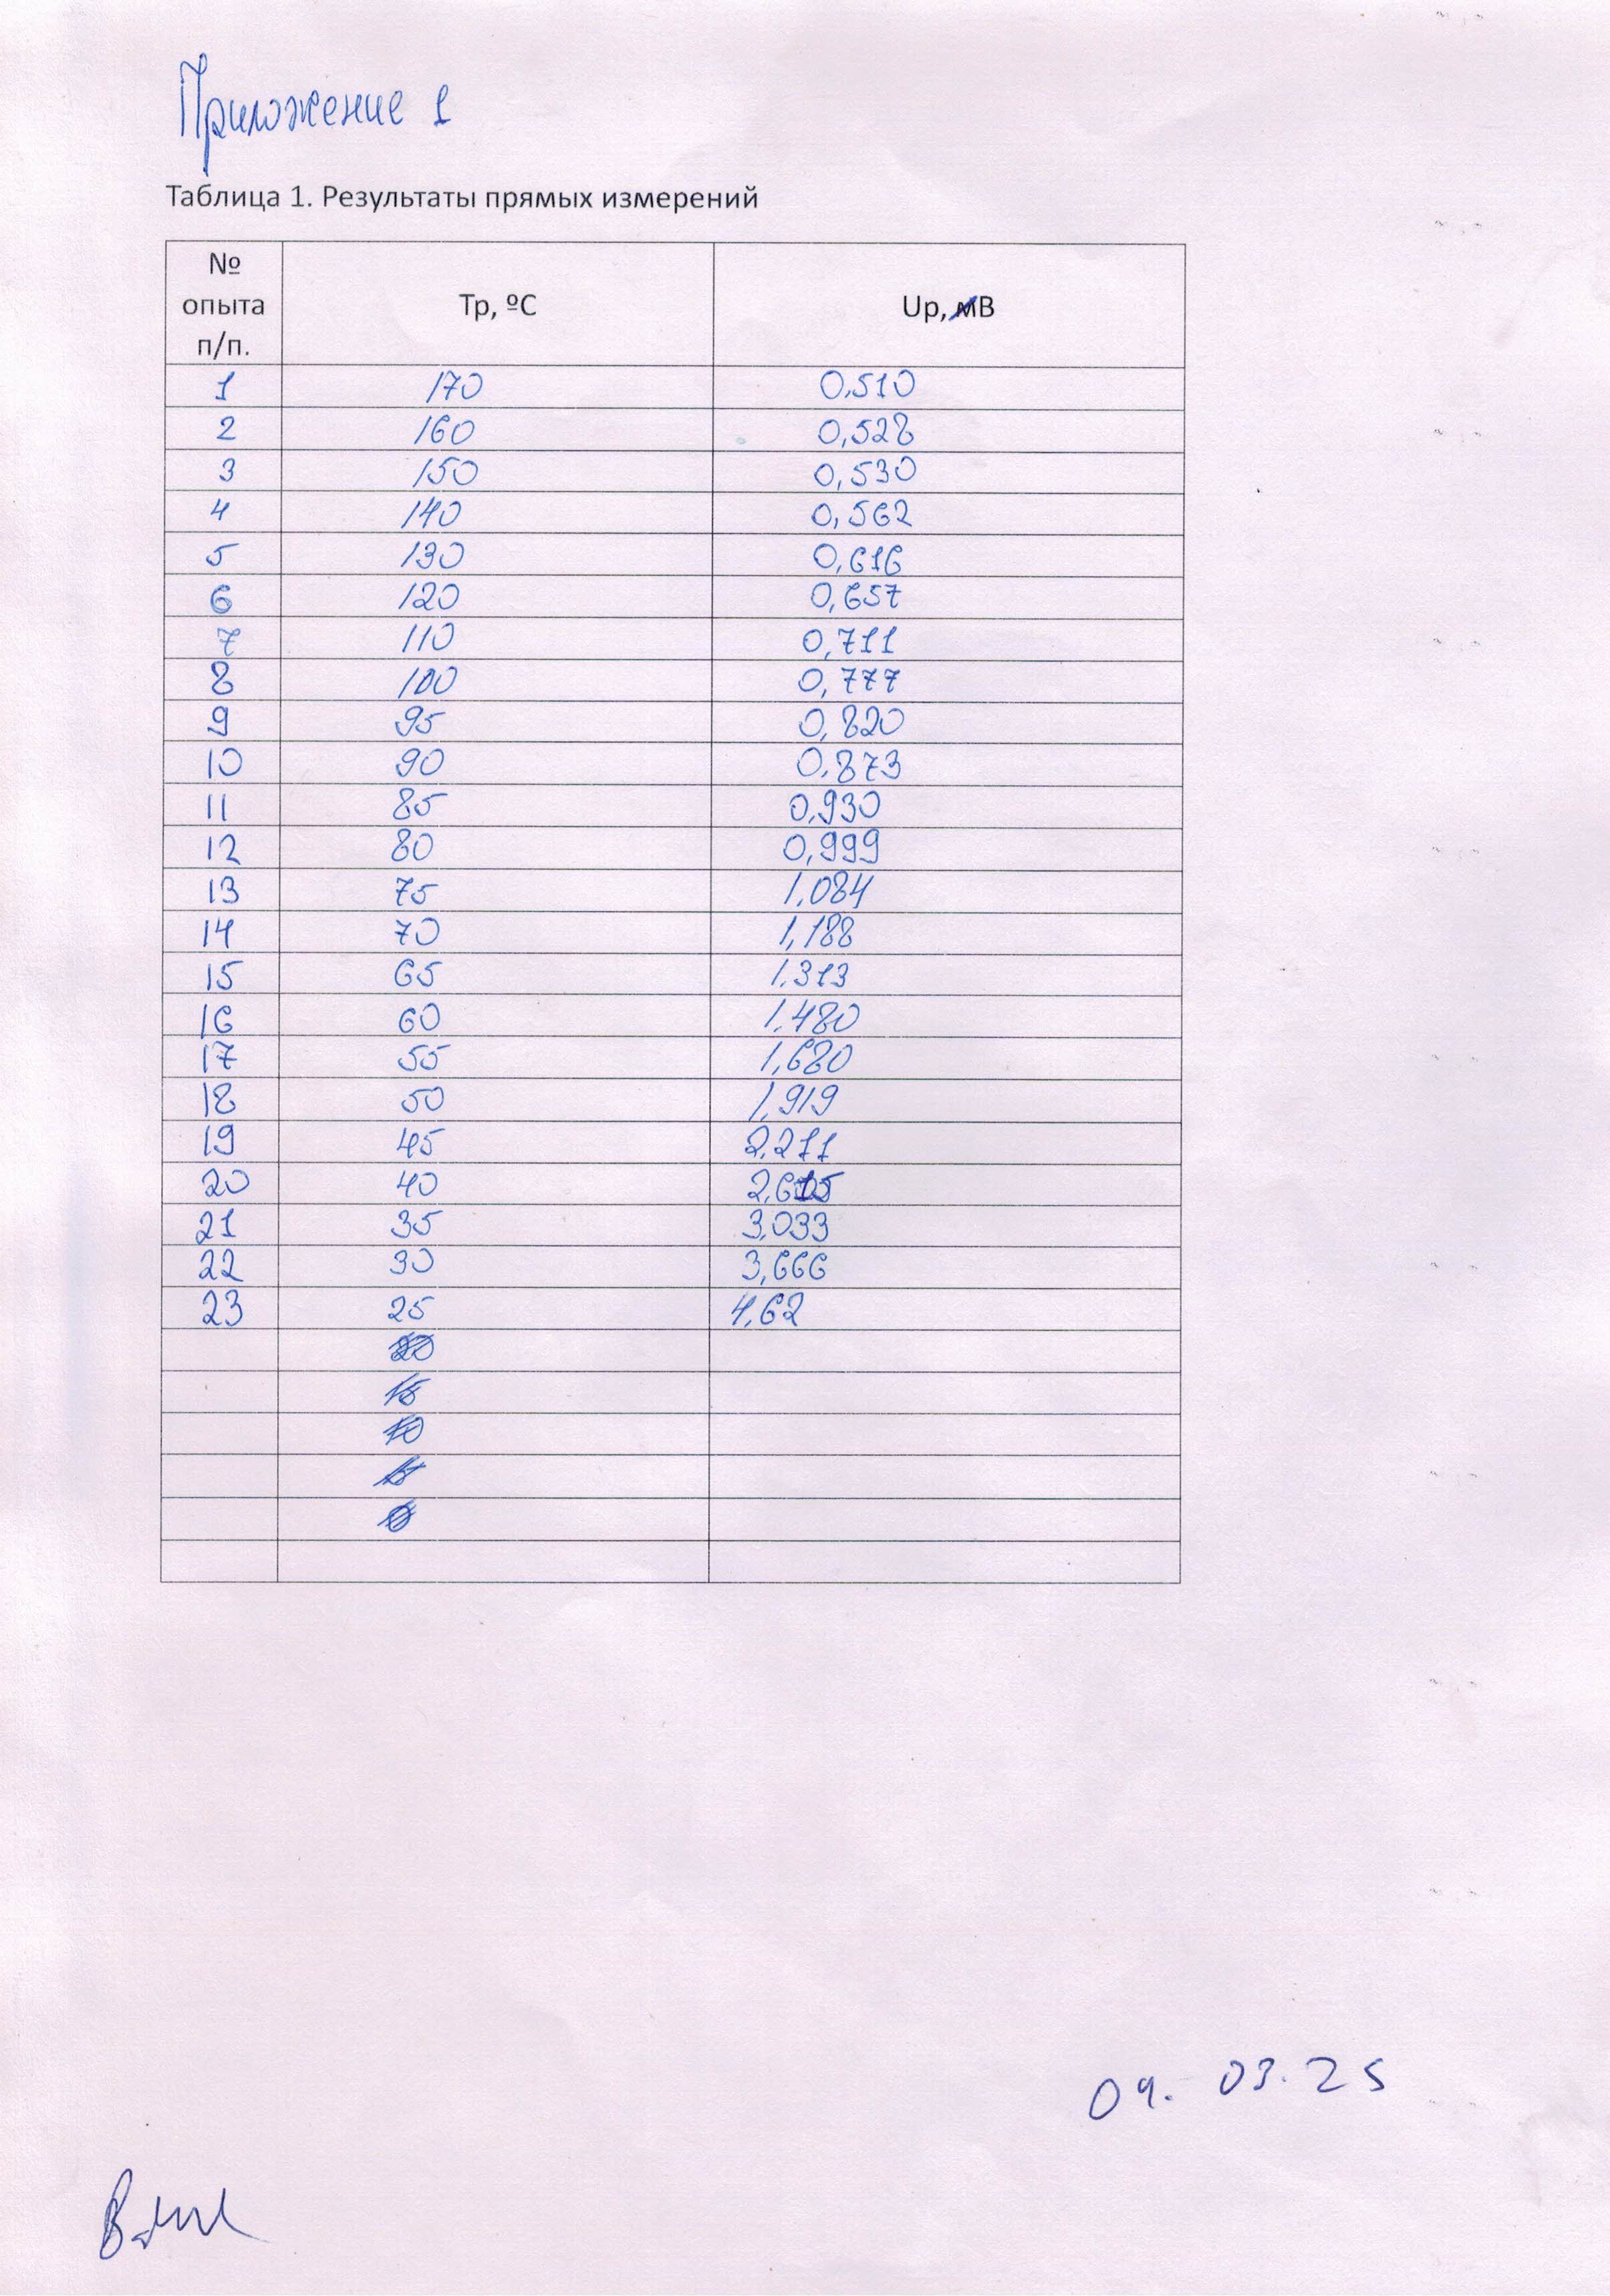 Приложение 1
Таблица 1. Результаты прямых измерений
№ опыта п/п. Тр, ºС Uр, В
1 170 0,510
2 160 0,528
3 150 0,530
4 140 0,562
5 130 0,616
6 120 0,657
7 110 0,711
8 100 0,777
9 95 0,820
10 90 0,873
11 85 0,930
12 80 0,999
13 75 1,084
14 70 1,188
15 65 1,313
16 60 1,480
17 55 1,680
18 50 1,919
19 45 2,271
20 40 2,615
21 35 3,033
22 30 3,666
23 25 4,62
20
15
10
04. 03. 25